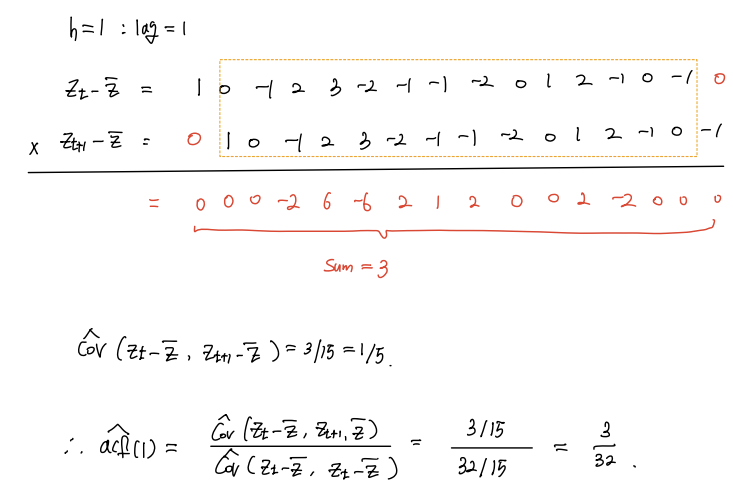 h=1 : lag=1
Zt-Z̄ = 1 0 -1 2 3 -2 -1 -1 -2 0 1 2 -1 0 -1 0
x Zt+1-Z̄ = 0 1 0 -1 2 3 -2 -1 -1 -2 0 1 2 -1 0 -1
= 0 0 0 -2 6 -6 2 1 2 0 0 2 -2 0 0 0
Sum = 3
Ĉov (Zt-Z̄, Zt+1-Z̄) = 3/15 = 1/5.
∴ acf̂(1) = Ĉov (Zt-Z̄, Zt+1, Z̄) / Ĉov (Zt-Z̄, Zt-Z̄) = 3/15 / 32/15 = 3/32.